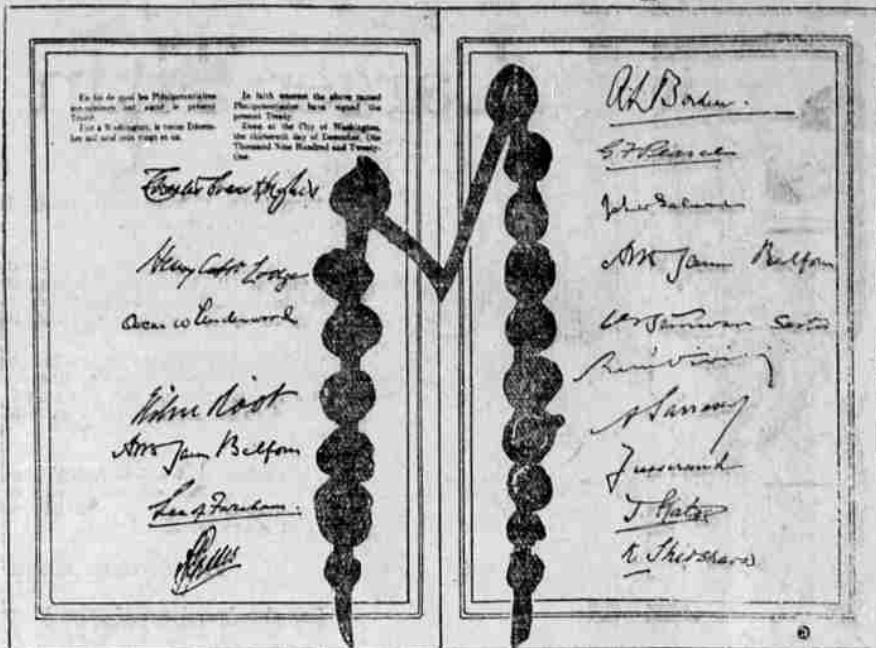 En foi de quoi les Plénipotentiaires
sus-nommés ont signé le présent
Traité.
Fait à Washington, le treize Décembre
mil neuf cent vingt et un.
In faith whereof the above named
Plenipotentiaries have signed the
present Treaty.
Done at the City of Washington,
the thirteenth day of December, One
Thousand Nine Hundred and Twenty-
One.
Charles Evans Hughes
Henry Cabot Lodge
Oscar W Underwood
Elihu Root
Arthur James Balfour
Lee of Fareham.
R L Borden.
G F Pearce
John Salmond
Arthur James Balfour
V S Srinivasa Sastri
René Viviani
A Sarraut
Jusserand
T. Kato
K. Shidehara